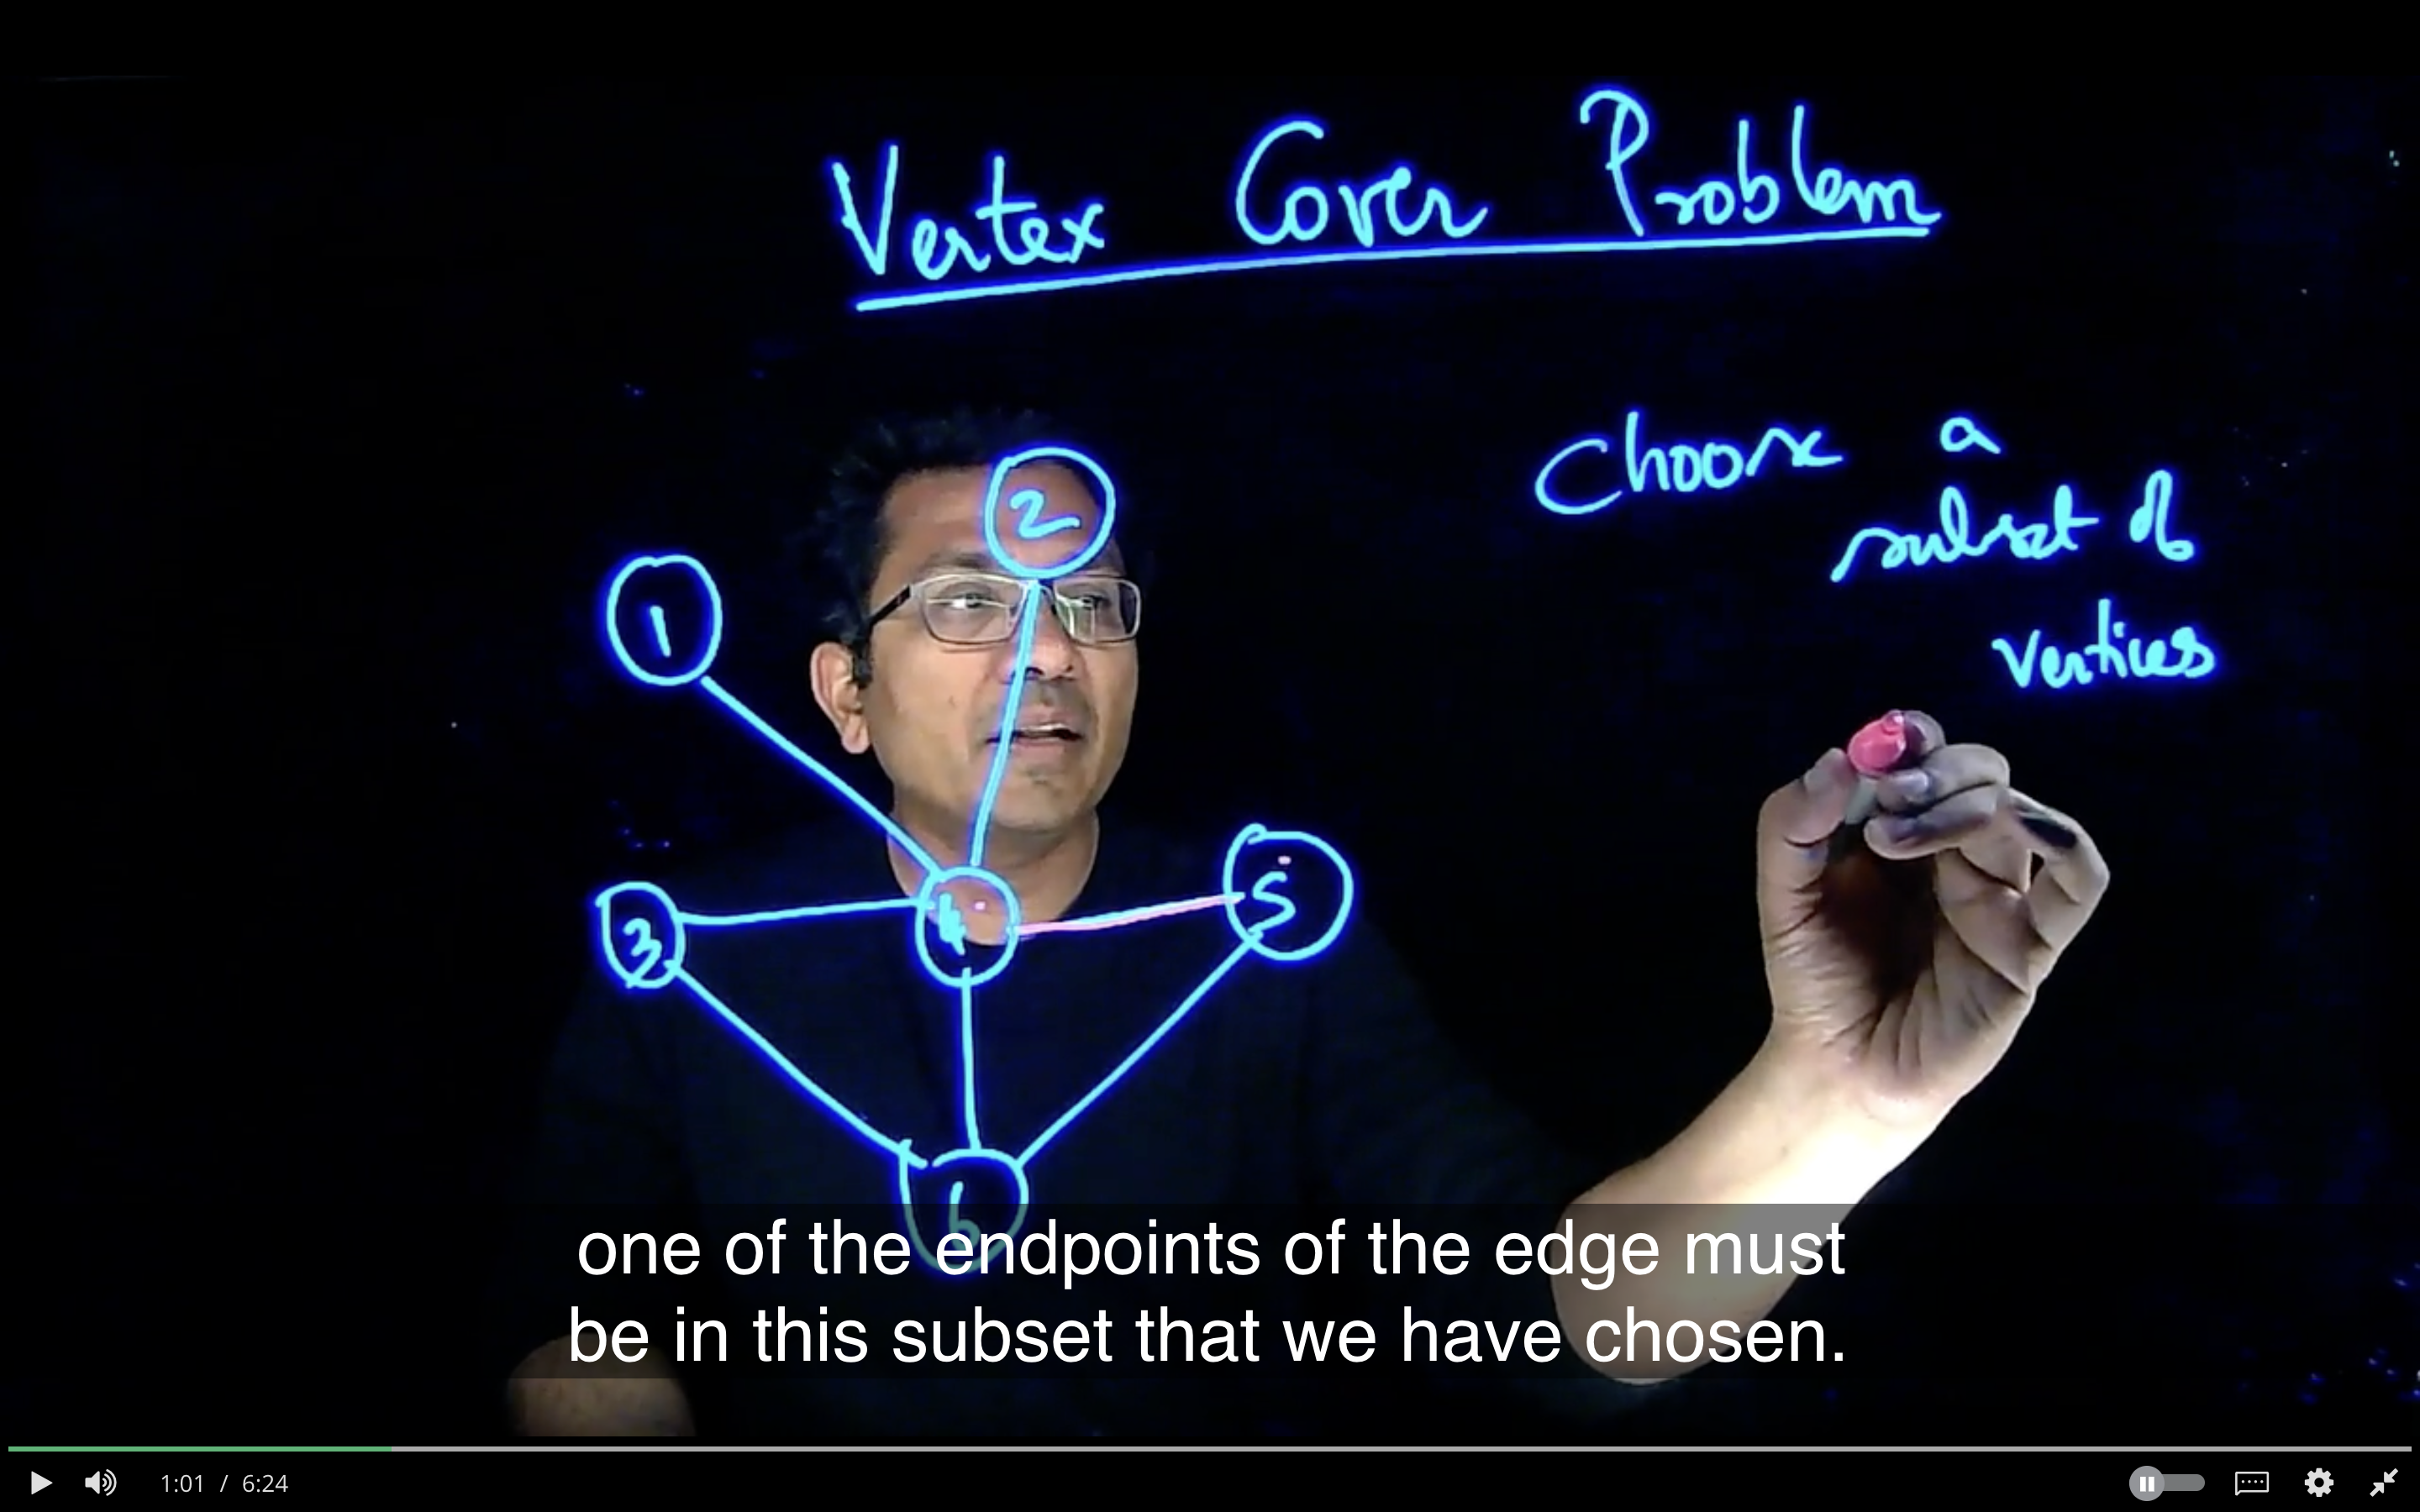 Vertex Cover Problem
Choose a
subset of
vertices
2
1
3
4
5
6
one of the endpoints of the edge must
be in this subset that we have chosen.
1:01 / 6:24